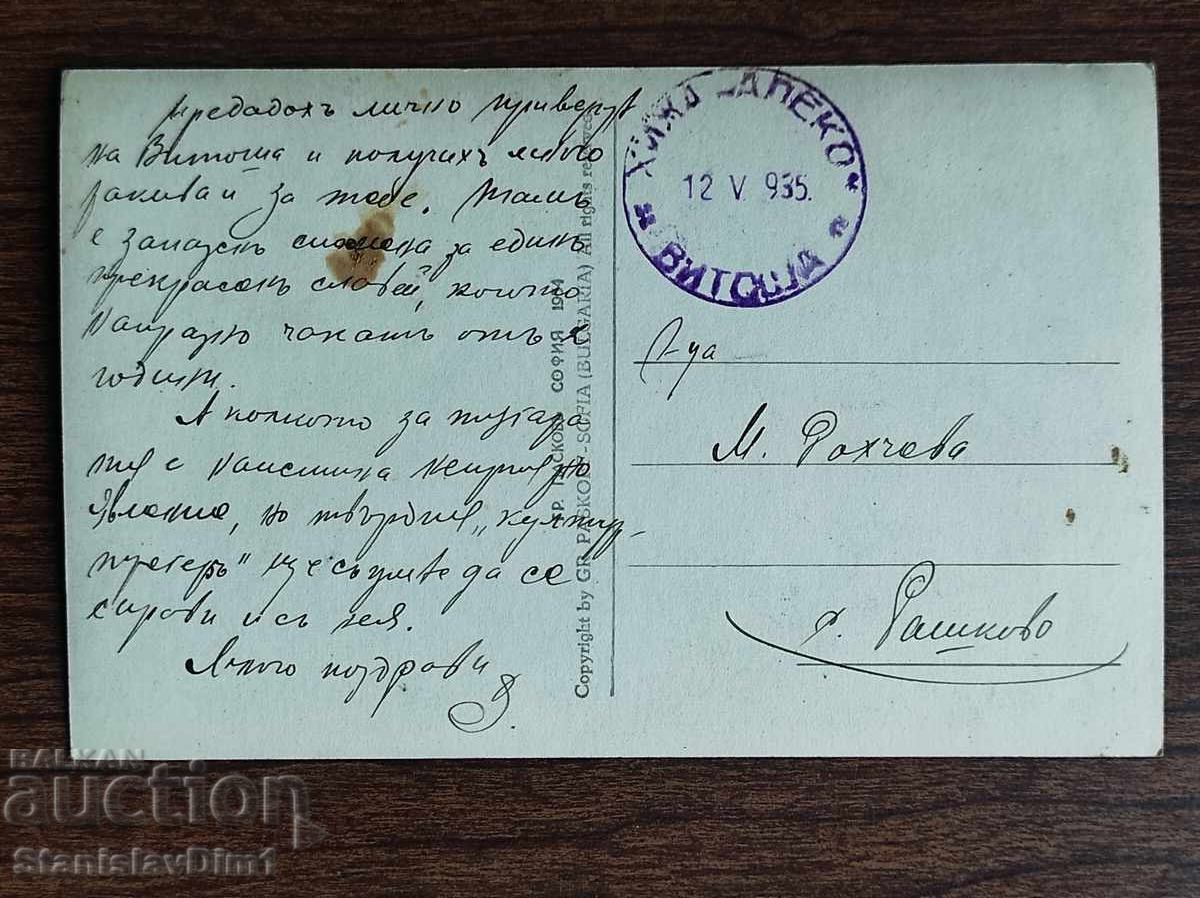 Предадохъ лично привета
на Витоша и получихъ много
за тебе. Тамъ
е запазенъ спомена за единъ
прекрасенъ славей, когото
напразно чакатъ отъ 2
години.
А колкото за
е наистина
явление, но твърдия „култур-
трегеръ" ще съумее да се
справи и съ нея.
Много поздрави
Copyright by GR. PASKOFF - SOFIA (BULGARIA) All rights reserved
ГР. ПАСКОВЪ СОФИЯ 1934
ХИЖА -АЛЕКО-
12 V. 935.
ВИТОША
Г-ца
М. Рахчева
г. Рашково
BALKAN
auction
StanislavDim1